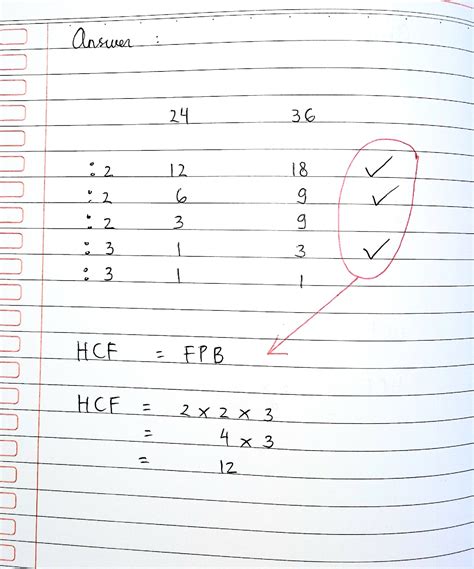 Answer :
24 36
: 2 12 18 ✓
: 2 6 9 ✓
: 2 3 9
: 3 1 3 ✓
: 3 1 1
HCF = FPB
HCF = 2 x 2 x 3
= 4 x 3
= 12